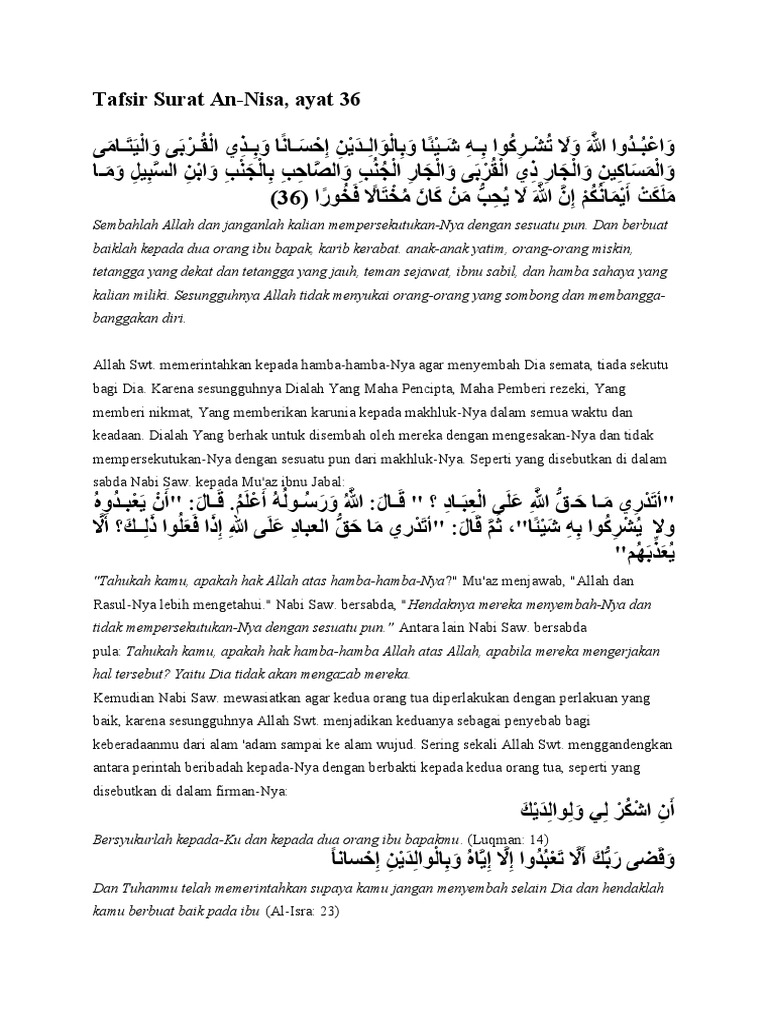 Tafsir Surat An-Nisa, ayat 36
وَاعْبُدُوا اللَّهَ وَلَا تُشْرِكُوا بِهِ شَيْئًا وَبِالْوَالِدَيْنِ إِحْسَانًا وَبِذِي الْقُرْبَى وَالْيَتَامَى
وَالْمَسَاكِينِ وَالْجَارِ ذِي الْقُرْبَى وَالْجَارِ الْجُنُبِ وَالصَّاحِبِ بِالْجَنْبِ وَابْنِ السَّبِيلِ وَمَا
مَلَكَتْ أَيْمَانُكُمْ إِنَّ اللَّهَ لَا يُحِبُّ مَنْ كَانَ مُخْتَالًا فَخُورًا (36)
Sembahlah Allah dan janganlah kalian mempersekutukan-Nya dengan sesuatu pun. Dan berbuat
baiklah kepada dua orang ibu bapak, karib kerabat. anak-anak yatim, orang-orang miskin,
tetangga yang dekat dan tetangga yang jauh, teman sejawat, ibnu sabil, dan hamba sahaya yang
kalian miliki. Sesungguhnya Allah tidak menyukai orang-orang yang sombong dan membangga-
banggakan diri.
Allah Swt. memerintahkan kepada hamba-hamba-Nya agar menyembah Dia semata, tiada sekutu
bagi Dia. Karena sesungguhnya Dialah Yang Maha Pencipta, Maha Pemberi rezeki, Yang
memberi nikmat, Yang memberikan karunia kepada makhluk-Nya dalam semua waktu dan
keadaan. Dialah Yang berhak untuk disembah oleh mereka dengan mengesakan-Nya dan tidak
mempersekutukan-Nya dengan sesuatu pun dari makhluk-Nya. Seperti yang disebutkan di dalam
sabda Nabi Saw. kepada Mu'az ibnu Jabal:
"أتَدْرِي مَا حَقُّ اللَّهِ عَلَى الْعِبَادِ ؟ " قَالَ: اللَّهُ وَرَسُولُهُ أَعْلَمُ. قَالَ: "أَنْ يَعْبدُوهُ
ولا يُشْرِكُوا بِهِ شَيْئًا"، ثُمَّ قَالَ: "أتَدْري مَا حَقُّ العبادِ عَلَى اللهِ إِذَا فَعَلُوا ذَلِكَ؟ أَلَّا
يُعَذِّبَهُم"
"Tahukah kamu, apakah hak Allah atas hamba-hamba-Nya?" Mu'az menjawab, "Allah dan
Rasul-Nya lebih mengetahui." Nabi Saw. bersabda, "Hendaknya mereka menyembah-Nya dan
tidak mempersekutukan-Nya dengan sesuatu pun.” Antara lain Nabi Saw. bersabda
pula: Tahukah kamu, apakah hak hamba-hamba Allah atas Allah, apabila mereka mengerjakan
hal tersebut? Yaitu Dia tidak akan mengazab mereka.
Kemudian Nabi Saw. mewasiatkan agar kedua orang tua diperlakukan dengan perlakuan yang
baik, karena sesungguhnya Allah Swt. menjadikan keduanya sebagai penyebab bagi
keberadaanmu dari alam 'adam sampai ke alam wujud. Sering sekali Allah Swt. menggandengkan
antara perintah beribadah kepada-Nya dengan berbakti kepada kedua orang tua, seperti yang
disebutkan di dalam firman-Nya:
أَنِ اشْكُرْ لِي وَلِوالِدَيْكَ
Bersyukurlah kepada-Ku dan kepada dua orang ibu bapakmu. (Luqman: 14)
وَقَضى رَبُّكَ أَلَّا تَعْبُدُوا إِلَّا إِيَّاهُ وَبِالْوالِدَيْنِ إِحْساناً
Dan Tuhanmu telah memerintahkan supaya kamu jangan menyembah selain Dia dan hendaklah
kamu berbuat baik pada ibu (Al-Isra: 23)